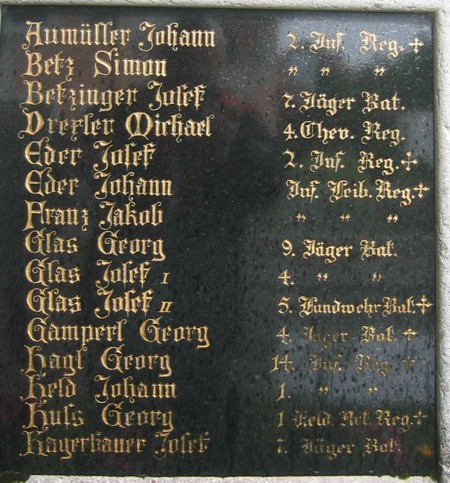 Aumüller Johann 2. Inf. Reg. ✝
Betz Simon " " "
Betzinger Josef 7. Jäger Bat.
Drexler Michael 4. Chev. Reg.
Eder Josef 2. Inf. Reg. ✝
Eder Johann Inf. Leib. Reg. ✝
Franz Jakob " " "
Glas Georg 9. Jäger Bat.
Glas Josef I 4. " "
Glas Josef II 5. Landwehr Bat. ✝
Gamperl Georg 4. Jäger Bat. ✝
Hagl Georg 14. Inf. Reg. ✝
Held Johann 1. " "
Huss Georg 1. Feld Art. Reg. ✝
Josef 7. Jäger Bat.